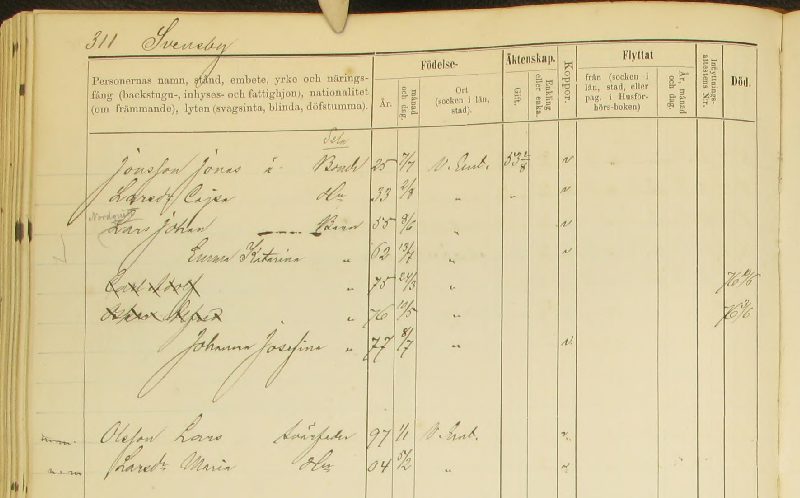 311 Svensby
Personernas namn, stånd, embete, yrke och närings-
fång (backstugu-, inhyses- och fattighjon), nationalitet
(om främmande), lyten (svagsinta, blinda, döfstumma).
Födelse-
År.
månad och dag.
Ort (socken i län, stad).
Äktenskap.
Gift.
Enkling eller enka.
Koppor.
Flyttat
från (socken i län, stad, eller pag. i Husför-hörs-boken)
År, månad och dag.
Inflyttnings-attestens N:r.
Död.
Jonsson Jonas ä. Bonde 25 7/7 V. Emt. 53 v
Larsdr Cajsa Hu 33 2/8 " v
Lars Johan Barn 55 8/6 " v
Emma Katarina " 62 13/7 " v
Carl Adolf " 75 24/3 "
" 76 10/5 "
Johanna Josefina " 77 8/7 " v
Olsson Lars svärfader 97 1/1 V. Emt. v
Larsdr Maria Hu 04 5/2 " v